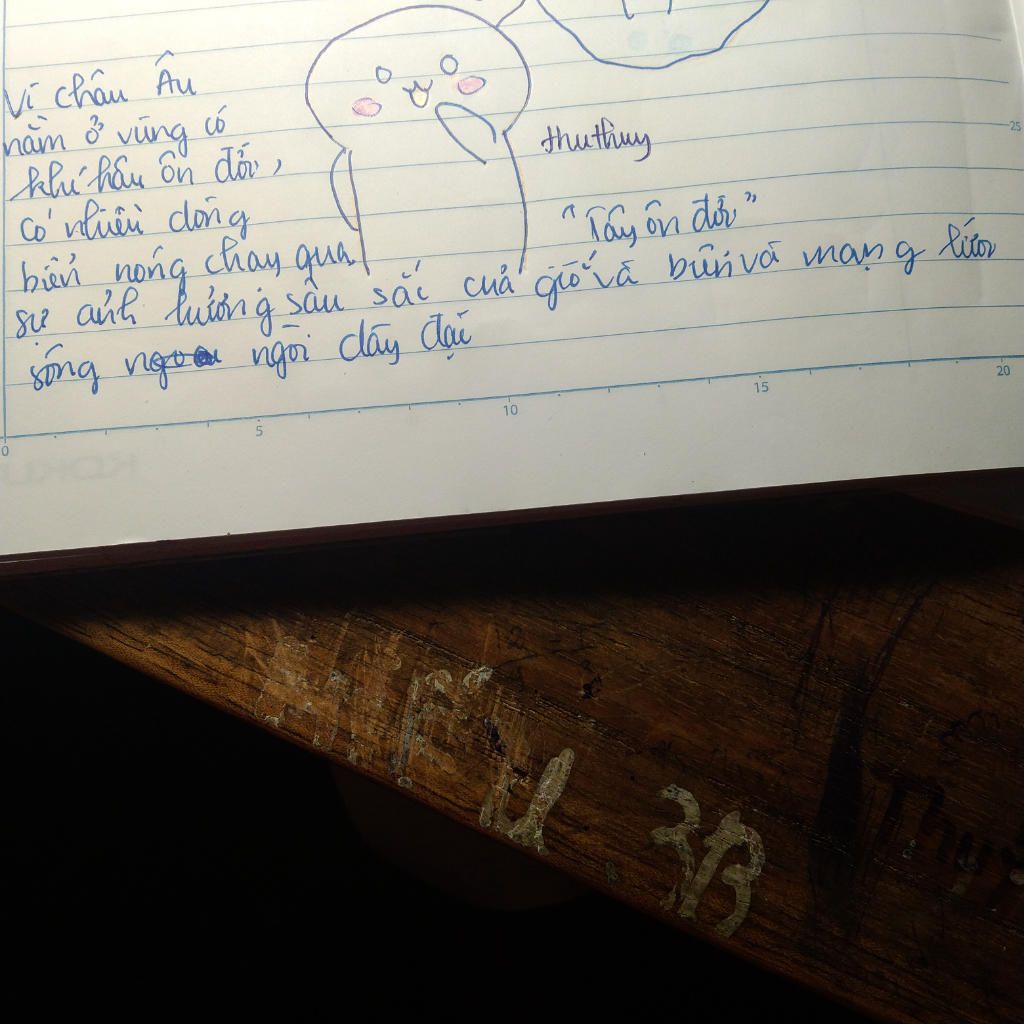 Vì châu Âu
nằm ở vùng có
khí hậu ôn đới,
có nhiều dòng
biển nóng chạy qua
thuthuy
"Tây ôn đới"
sự ảnh hưởng sâu sắc của gió và biển và mạng lưới
sông ngòi dày đặc
0 5 10 15 20
25
HIẾU 3B